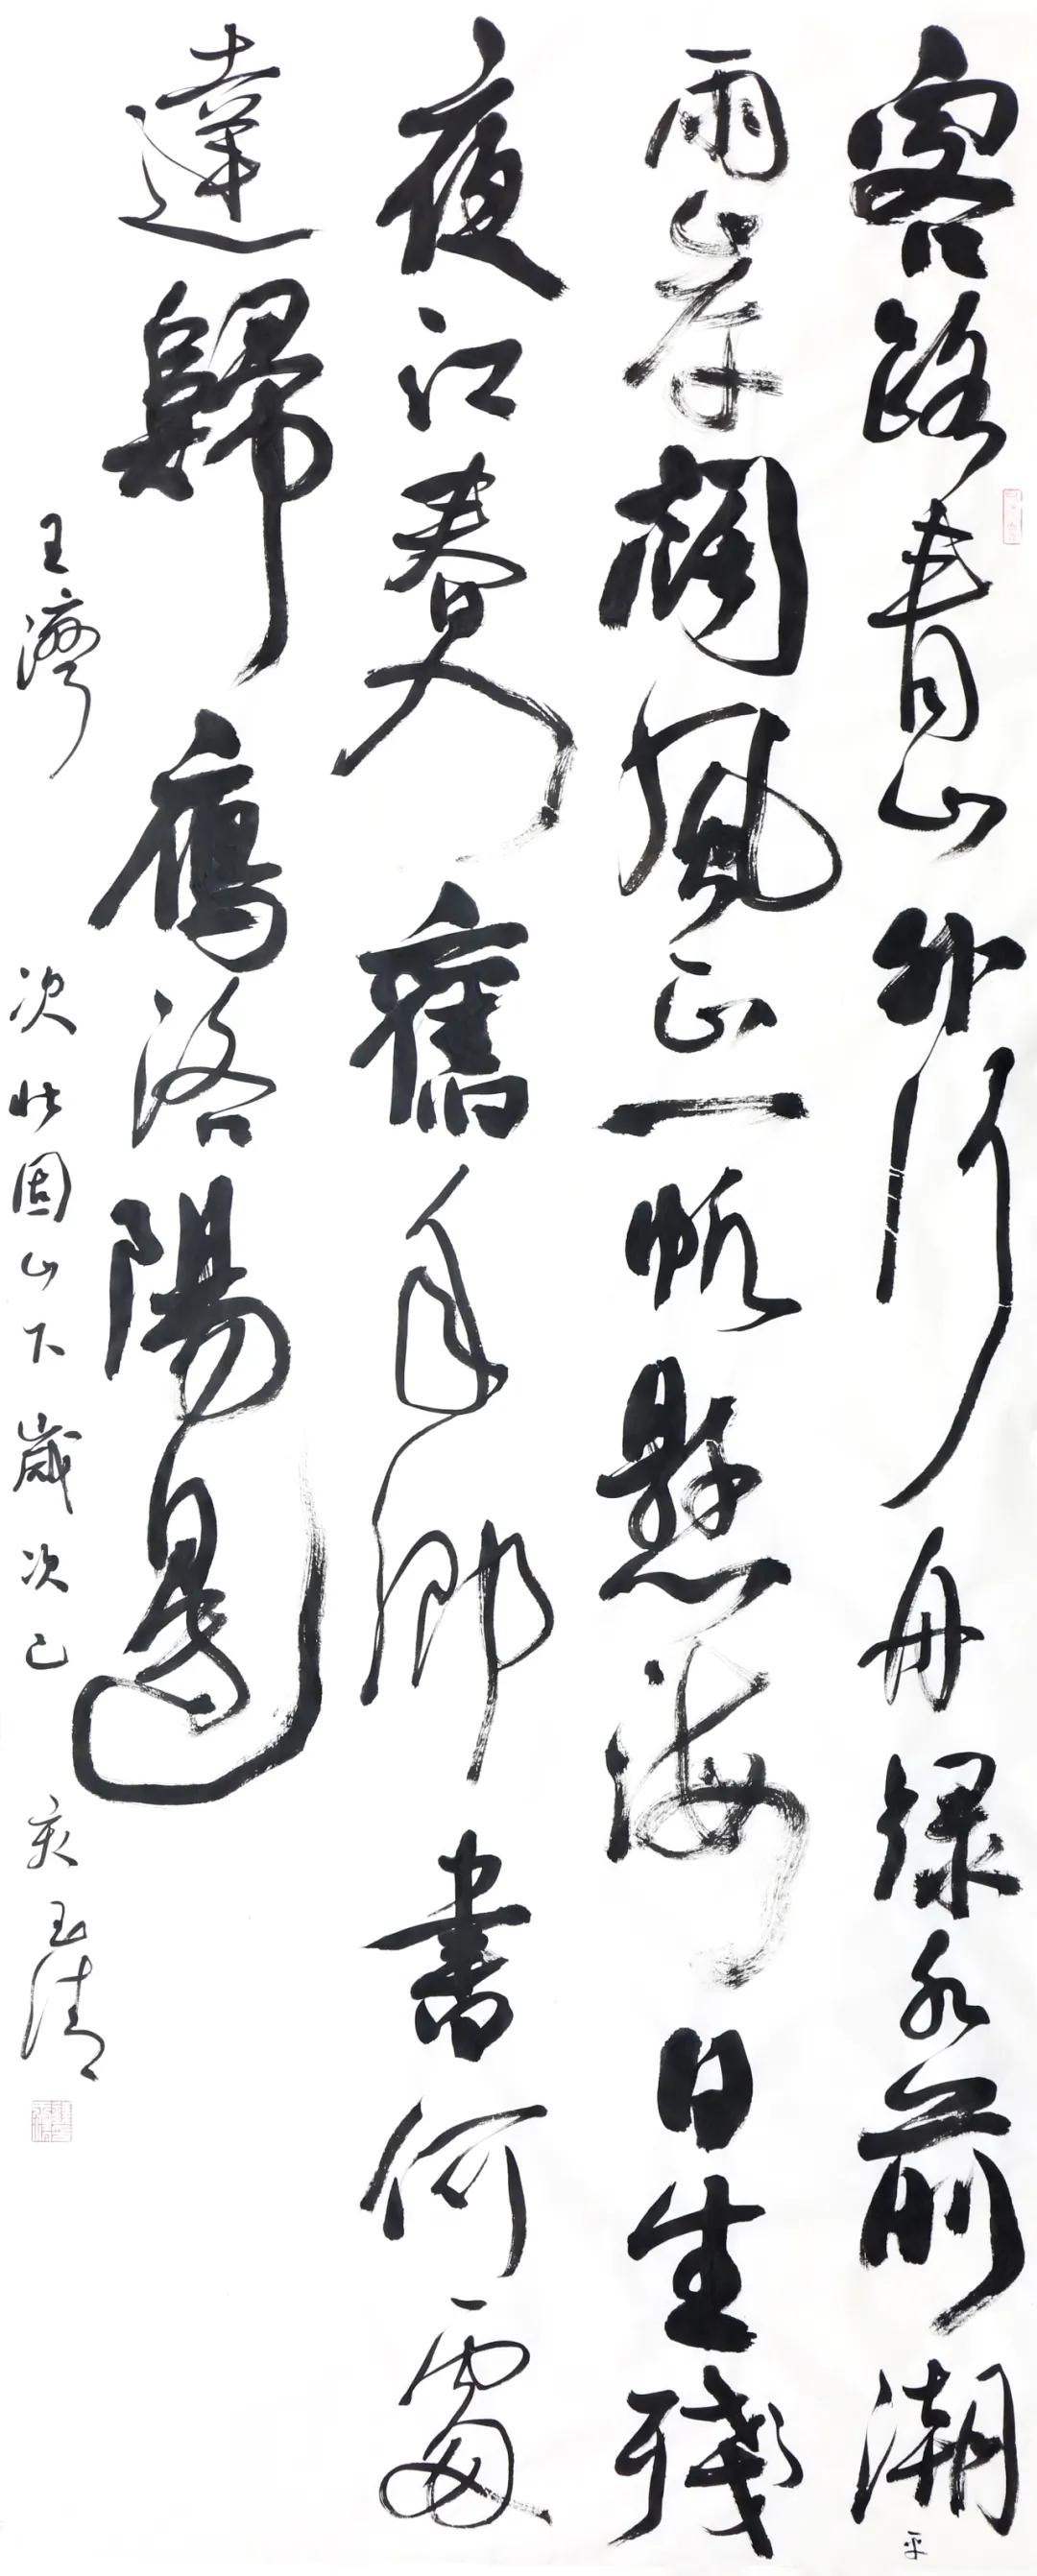 客路青山外行舟綠水前潮平
兩岸闊風正一帆懸海日生殘
夜江春入舊年鄉書何處
達歸鴈洛陽邊
王灣 次北固山下 歲次己亥 玉清